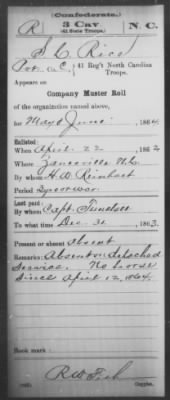 (Confederate.)
R 3 Cav. N. C.
(41 State Troops.)
S. C. Rice
Pvt. Co. C, 41 Reg't North Carolina
Troops.
Appears on
Company Muster Roll
of the organization named above,
for May & June, 1864.
Enlisted:
When April 22, 1862
Where Zanesville N.C.
By whom H. W. Reinhart
Period 2 yrs or war
Last paid:
By whom Capt.
To what time Dec. 31, 1863.
Present or absent Absent
Remarks: Absent on detached
service. No horse
since April 12, 1864.
Book mark:
(642) Copyist.